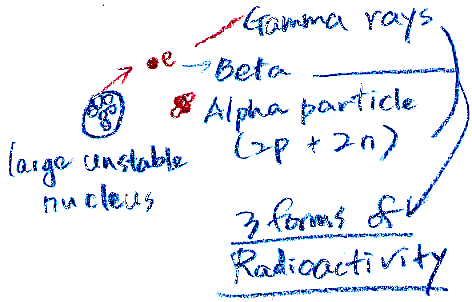 Gamma rays
e
Beta
Alpha particle
(2p + 2n)
large unstable
nucleus
3 forms of
Radioactivity